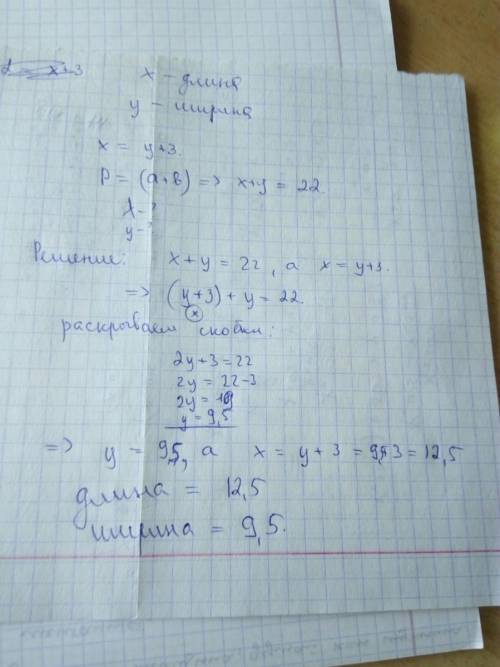 x - длина
y - ширина
x = y+3.
P = (a+b) => x+y = 22.
x-?
y-?
Решение: x+y = 22, а x = y+3.
=> (y+3) + y = 22.
(x)
раскрываем скобки:
2y+3 = 22
2y = 22-3
2y = 19
y = 9,5
=> y = 9,5, а x = y+3 = 9,5+3 = 12,5
длина = 12,5
ширина = 9,5.